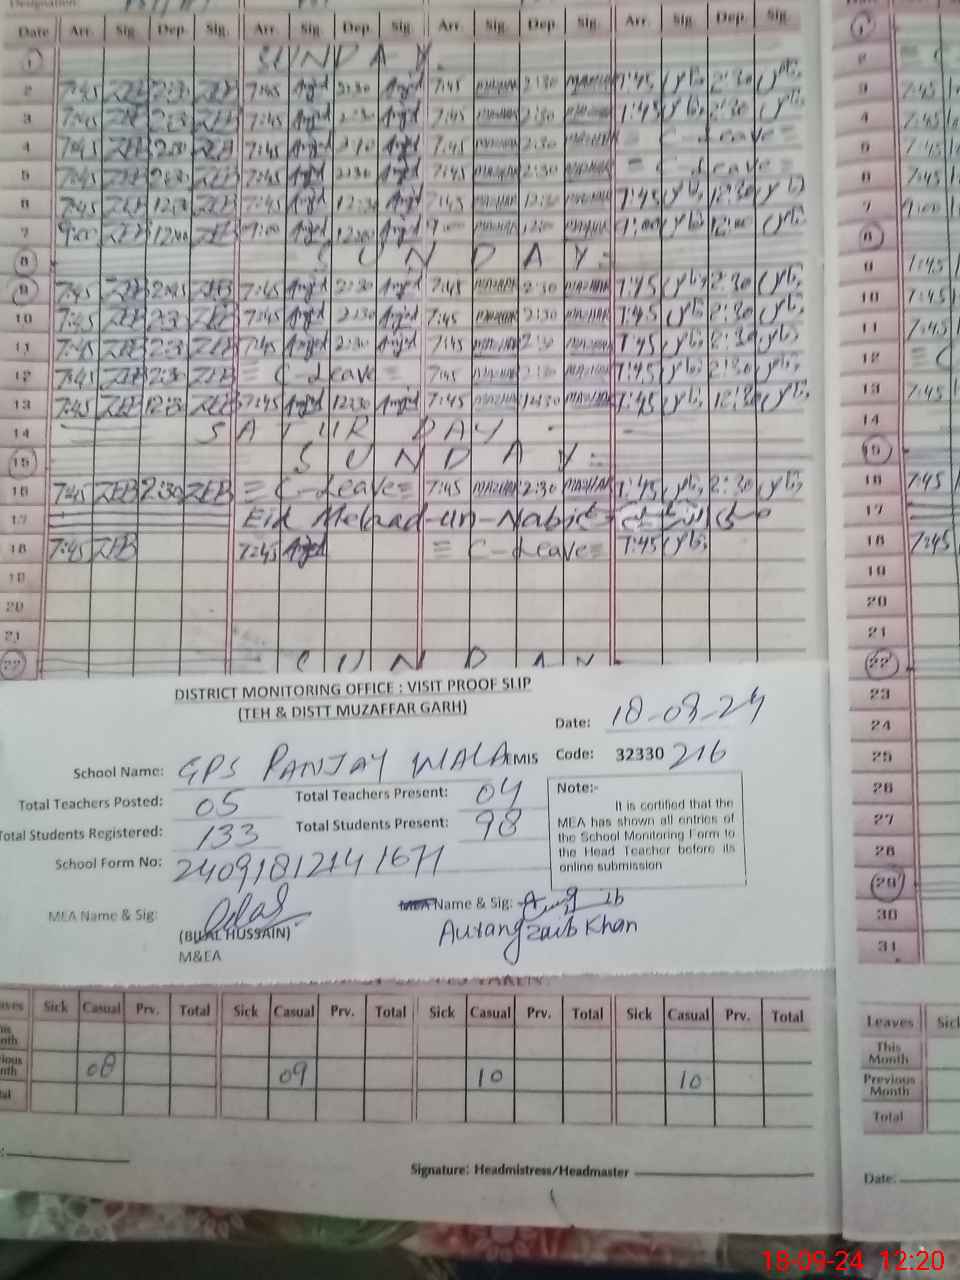 Designation
Date Arr. Sig. Dep. Sig. Arr. Sig. Dep. Sig. Arr. Sig. Dep. Sig. Arr. Sig. Dep. Sig.
1 SUNDAY.
2 7:45 ZEB 2:30 ZEB 7:45 Amjd 2:30 Amjd 7:45 MAZHAR 2:30 MAZHAR 7:45 2:30
3 7:45 ZEB 2:30 ZEB 7:45 Amjd 2:30 Amjd 7:45 MAZHAR 2:30 MAZHAR 7:45 2:30
4 7:45 ZEB 2:30 ZEB 7:45 Amjd 2:30 Amjd 7:45 MAZHAR 2:30 MAZHAR = C-Leave =
5 7:45 ZEB 2:30 ZEB 7:45 Amjd 2:30 Amjd 7:45 MAZHAR 2:30 MAZHAR = C-Leave =
6 7:45 ZEB 12:30 ZEB 7:45 Amjd 12:30 Amjd 7:45 MAZHAR 12:30 MAZHAR 7:45 12:30
7 9:00 ZEB 12:00 ZEB 9:00 Amjd 12:00 Amjd 9:00 MAZHAR 12:00 MAZHAR 9:00 12:00
8 SUNDAY:
9 7:45 ZEB 2:45 ZEB 7:45 Amjd 2:30 Amjd 7:45 MAZHAR 2:30 MAZHAR 7:45 2:30
10 7:45 ZEB 2:30 ZEB 7:45 Amjd 2:30 Amjd 7:45 MAZHAR 2:30 MAZHAR 7:45 2:30
11 7:45 ZEB 2:30 ZEB 7:45 Amjd 2:30 Amjd 7:45 MAZHAR 2:30 MAZHAR 7:45 2:30
12 7:45 ZEB 2:30 ZEB = C-Leave = 7:45 MAZHAR 2:30 MAZHAR 7:45 2:30
13 7:45 ZEB 12:30 ZEB 7:45 Amjd 12:30 Amjd 7:45 MAZHAR 12:30 MAZHAR 7:45 12:30
14 SATURDAY
15 SUNDAY:
16 7:45 ZEB 2:30 ZEB = C-Leave = 7:45 MAZHAR 2:30 MAZHAR 7:45 2:30
17 Eid Melaad-un-Nabi
18 7:45 ZEB 7:45 Amjd = C-Leave = 7:45
19
20
21
22 SUNDA
DISTRICT MONITORING OFFICE : VISIT PROOF SLIP
(TEH & DISTT MUZAFFAR GARH)
Date: 18-09-24
School Name: GPS PANJAY WALA EMIS Code: 32330 216
Total Teachers Posted: 05 Total Teachers Present: 04
Total Students Registered: 133 Total Students Present: 98
School Form No: 24091812141671
Note:-
It is certified that the
MEA has shown all entries of
the School Monitoring Form to
the Head Teacher before its
online submission
MEA Name & Sig: Name & Sig:
(BILAL HUSSAIN) Aurangzaib Khan
M&EA
Sick Casual Prv. Total Sick Casual Prv. Total Sick Casual Prv. Total Sick Casual Prv. Total
08 09 10 10
Signature: Headmistress/Headmaster
1
2
3 7:45
4 7:45
5 7:45
6 7:45
7 9:00
8
9 7:45
10 7:45
11 7:45
12
13 7:45
14
15
16 7:45
17
18 7:45
19
20
21
22
23
24
25
26
27
28
29
30
31
Leaves Sick
This Month
Previous Month
Total
Date:
18-09-24 12:20